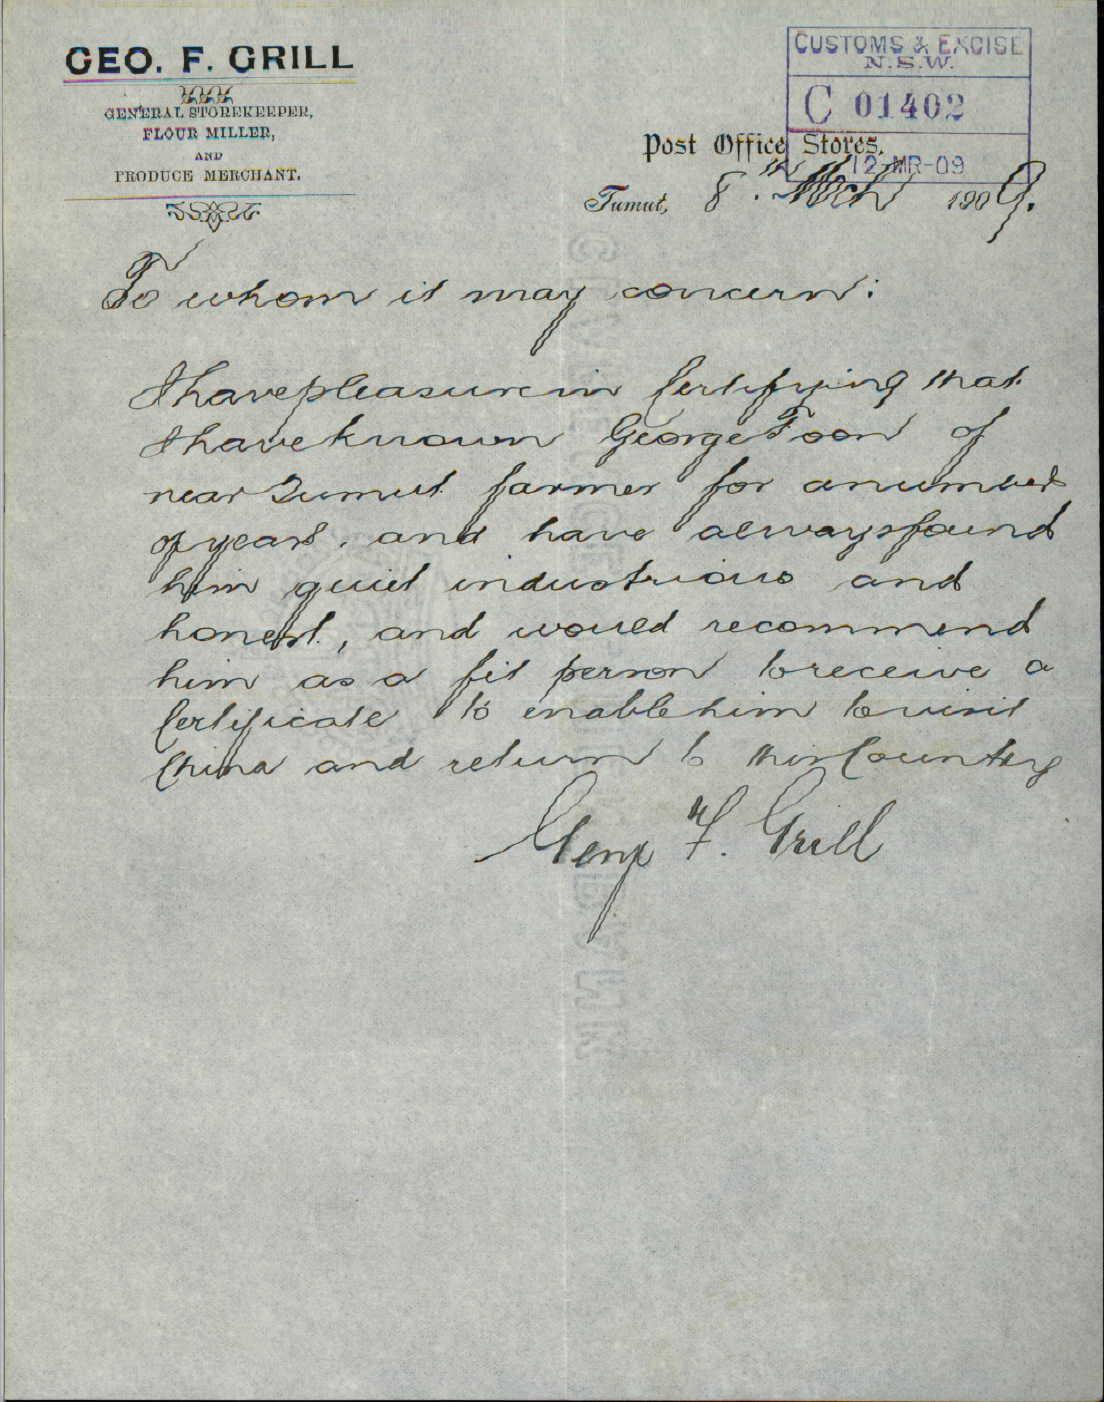 GEO. F. GRILL
GENERAL STOREKEEPER,
FLOUR MILLER,
AND
PRODUCE MERCHANT.
CUSTOMS & EXCISE
N.S.W.
C 01402
12-MR-09
Post Office Stores,
Tumut, 8th Mch 1909.
To whom it may concern:
I have pleasure in Certifying that
I have known George Foon of
near Tumut farmer for a number
of years, and have always found
him quiet industrious and
honest, and would recommend
him as a fit person to receive a
Certificate to enable him to visit
China and return to this Country
Geo F. Grill